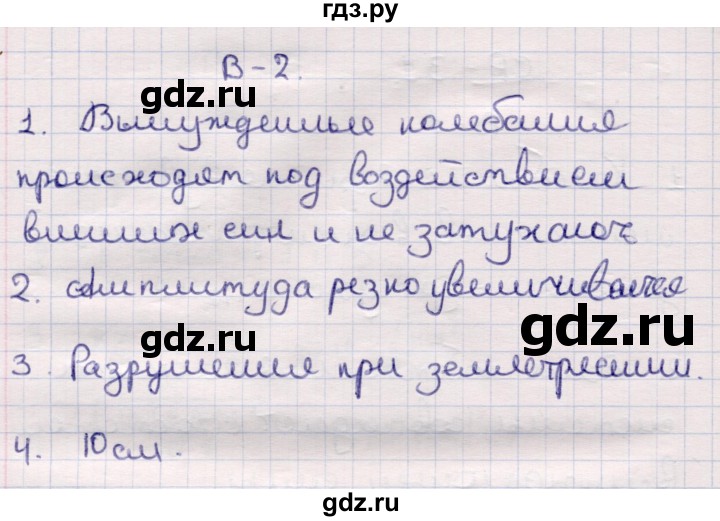 гдз.ру
В-2.
gdz.ru
1. Вынужденные колебания
происходят под воздействием
внешних сил и не затухают
2. Амплитуда резко увеличивается
gdz.ru
gdz.ru
3. Разрушения при землетрясении.
4. 10 см.
gdz.ru